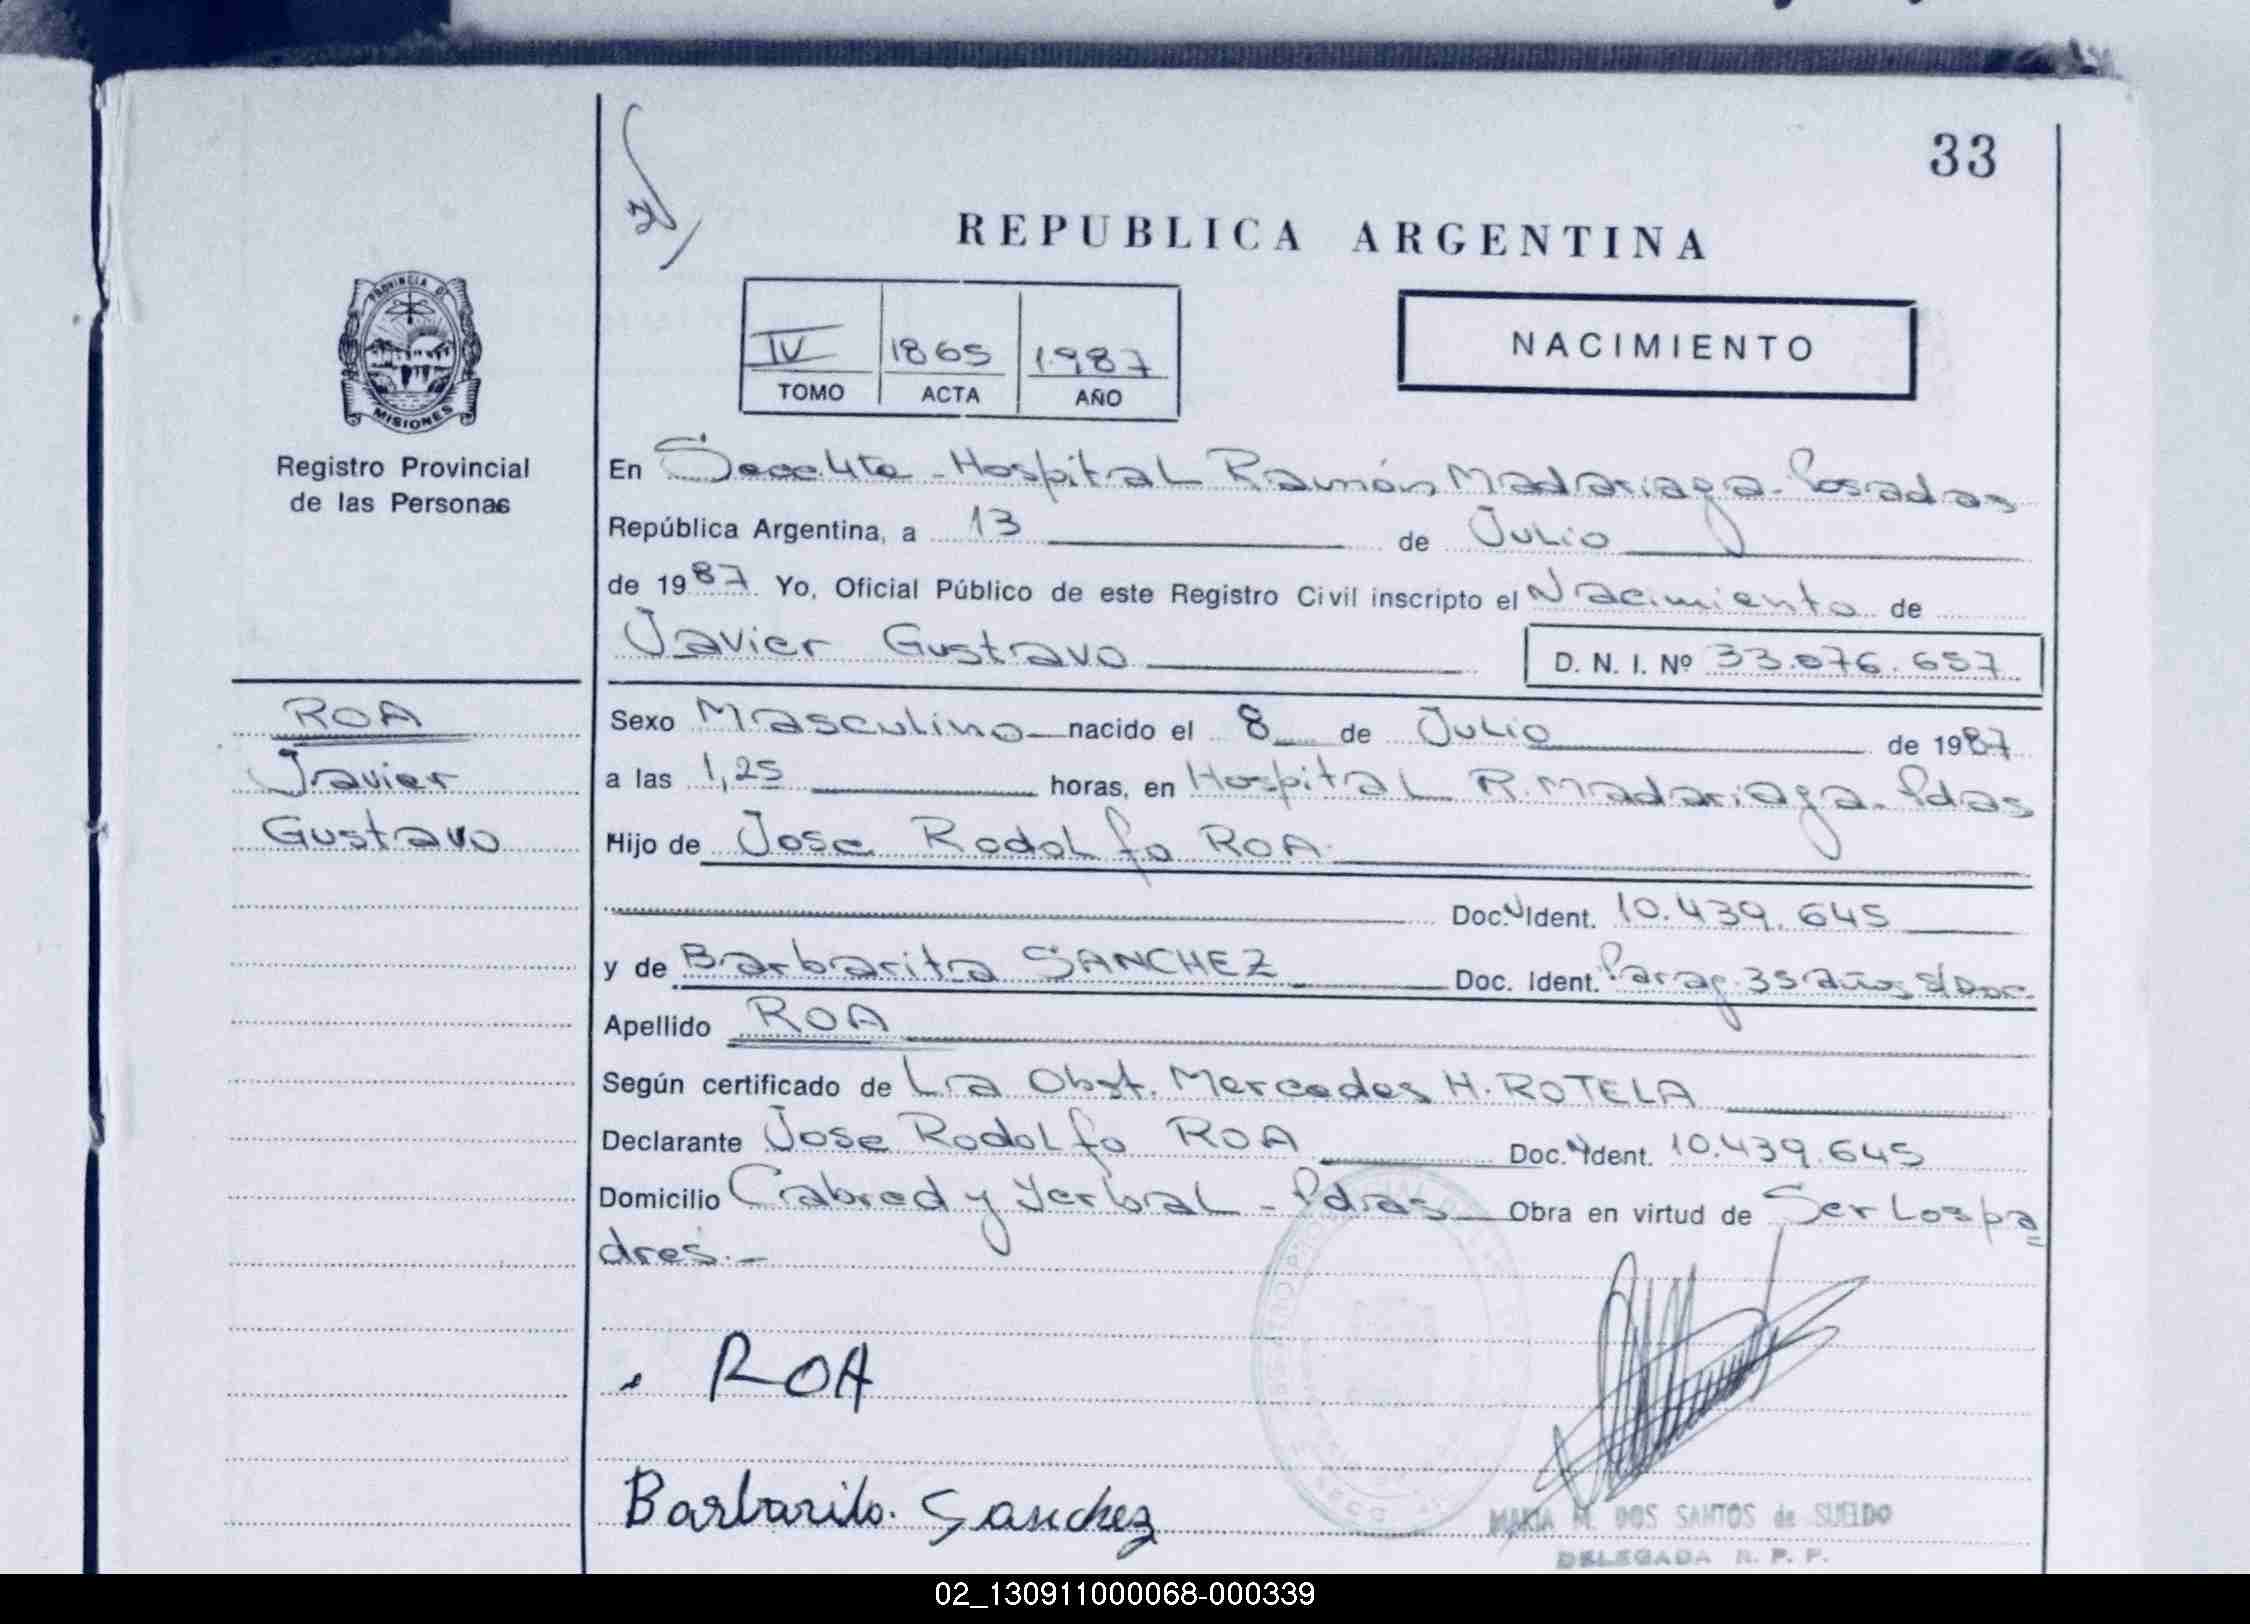 33
REPUBLICA ARGENTINA
PROVINCIA DE
MISIONES
Registro Provincial
de las Personas
IV 1865 1987
TOMO ACTA AÑO
NACIMIENTO
En Secc. 4ta - Hospital Ramón Madariaga - Posadas
República Argentina, a 13 de Julio
de 1987. Yo, Oficial Público de este Registro Civil inscripto el Nacimiento de
Javier Gustavo D. N. I. Nº 33.076.657
ROA
Javier
Gustavo
Sexo Masculino nacido el 8 de Julio de 1987
a las 1,25 horas, en Hospital R. Madariaga - Pdas
Hijo de Jose Rodolfo ROA
Doc. Ident. 10.439.645
y de Barbarita SANCHEZ Doc. Ident. Parag. 35 años s/Doc.
Apellido ROA
Según certificado de La Obst. Mercedes H. ROTELA
Declarante Jose Rodolfo ROA Doc. Ident. 10.439.645
Domicilio Cabred y Yerbal - Pdas Obra en virtud de Ser los pa
dres.-
ROA
Barbarita Sanchez
MARIA M. DOS SANTOS de SUELDO
DELEGADA R. P. P.
02_130911000068-000339